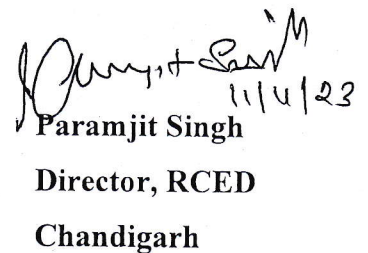 Paramjit Singh
11/4/23
Paramjit Singh
Director, RCED
Chandigarh